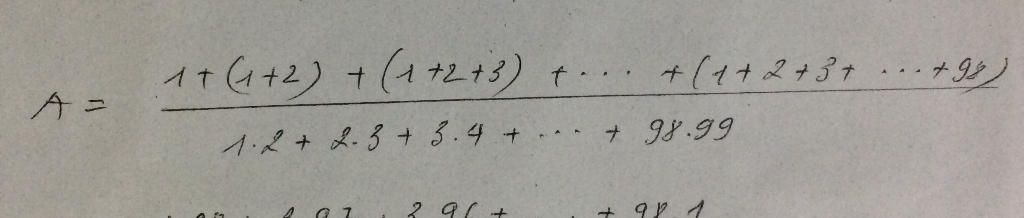 1+(1+2) +(1+2+3) + ··· +(1+2+3+ ···+98)
A =
1.2 + 2.3 + 3.4 + ··· + 98.99